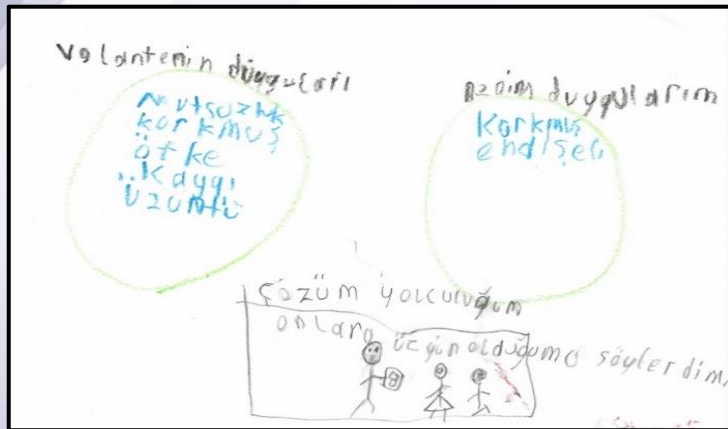 Valantenin duyguları
mutsuzluk
korkmuş
öfke
kaygı
üzüntü
benim duygularım
korkmuş
endişeli
çözüm yolculuğum
onlara üzgün olduğumu söylerdim.